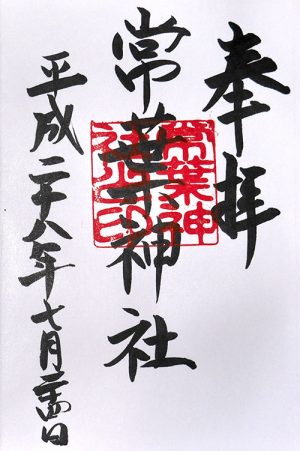 奉拝
常葉神社
常葉神社之印
平成二十八年七月二十四日